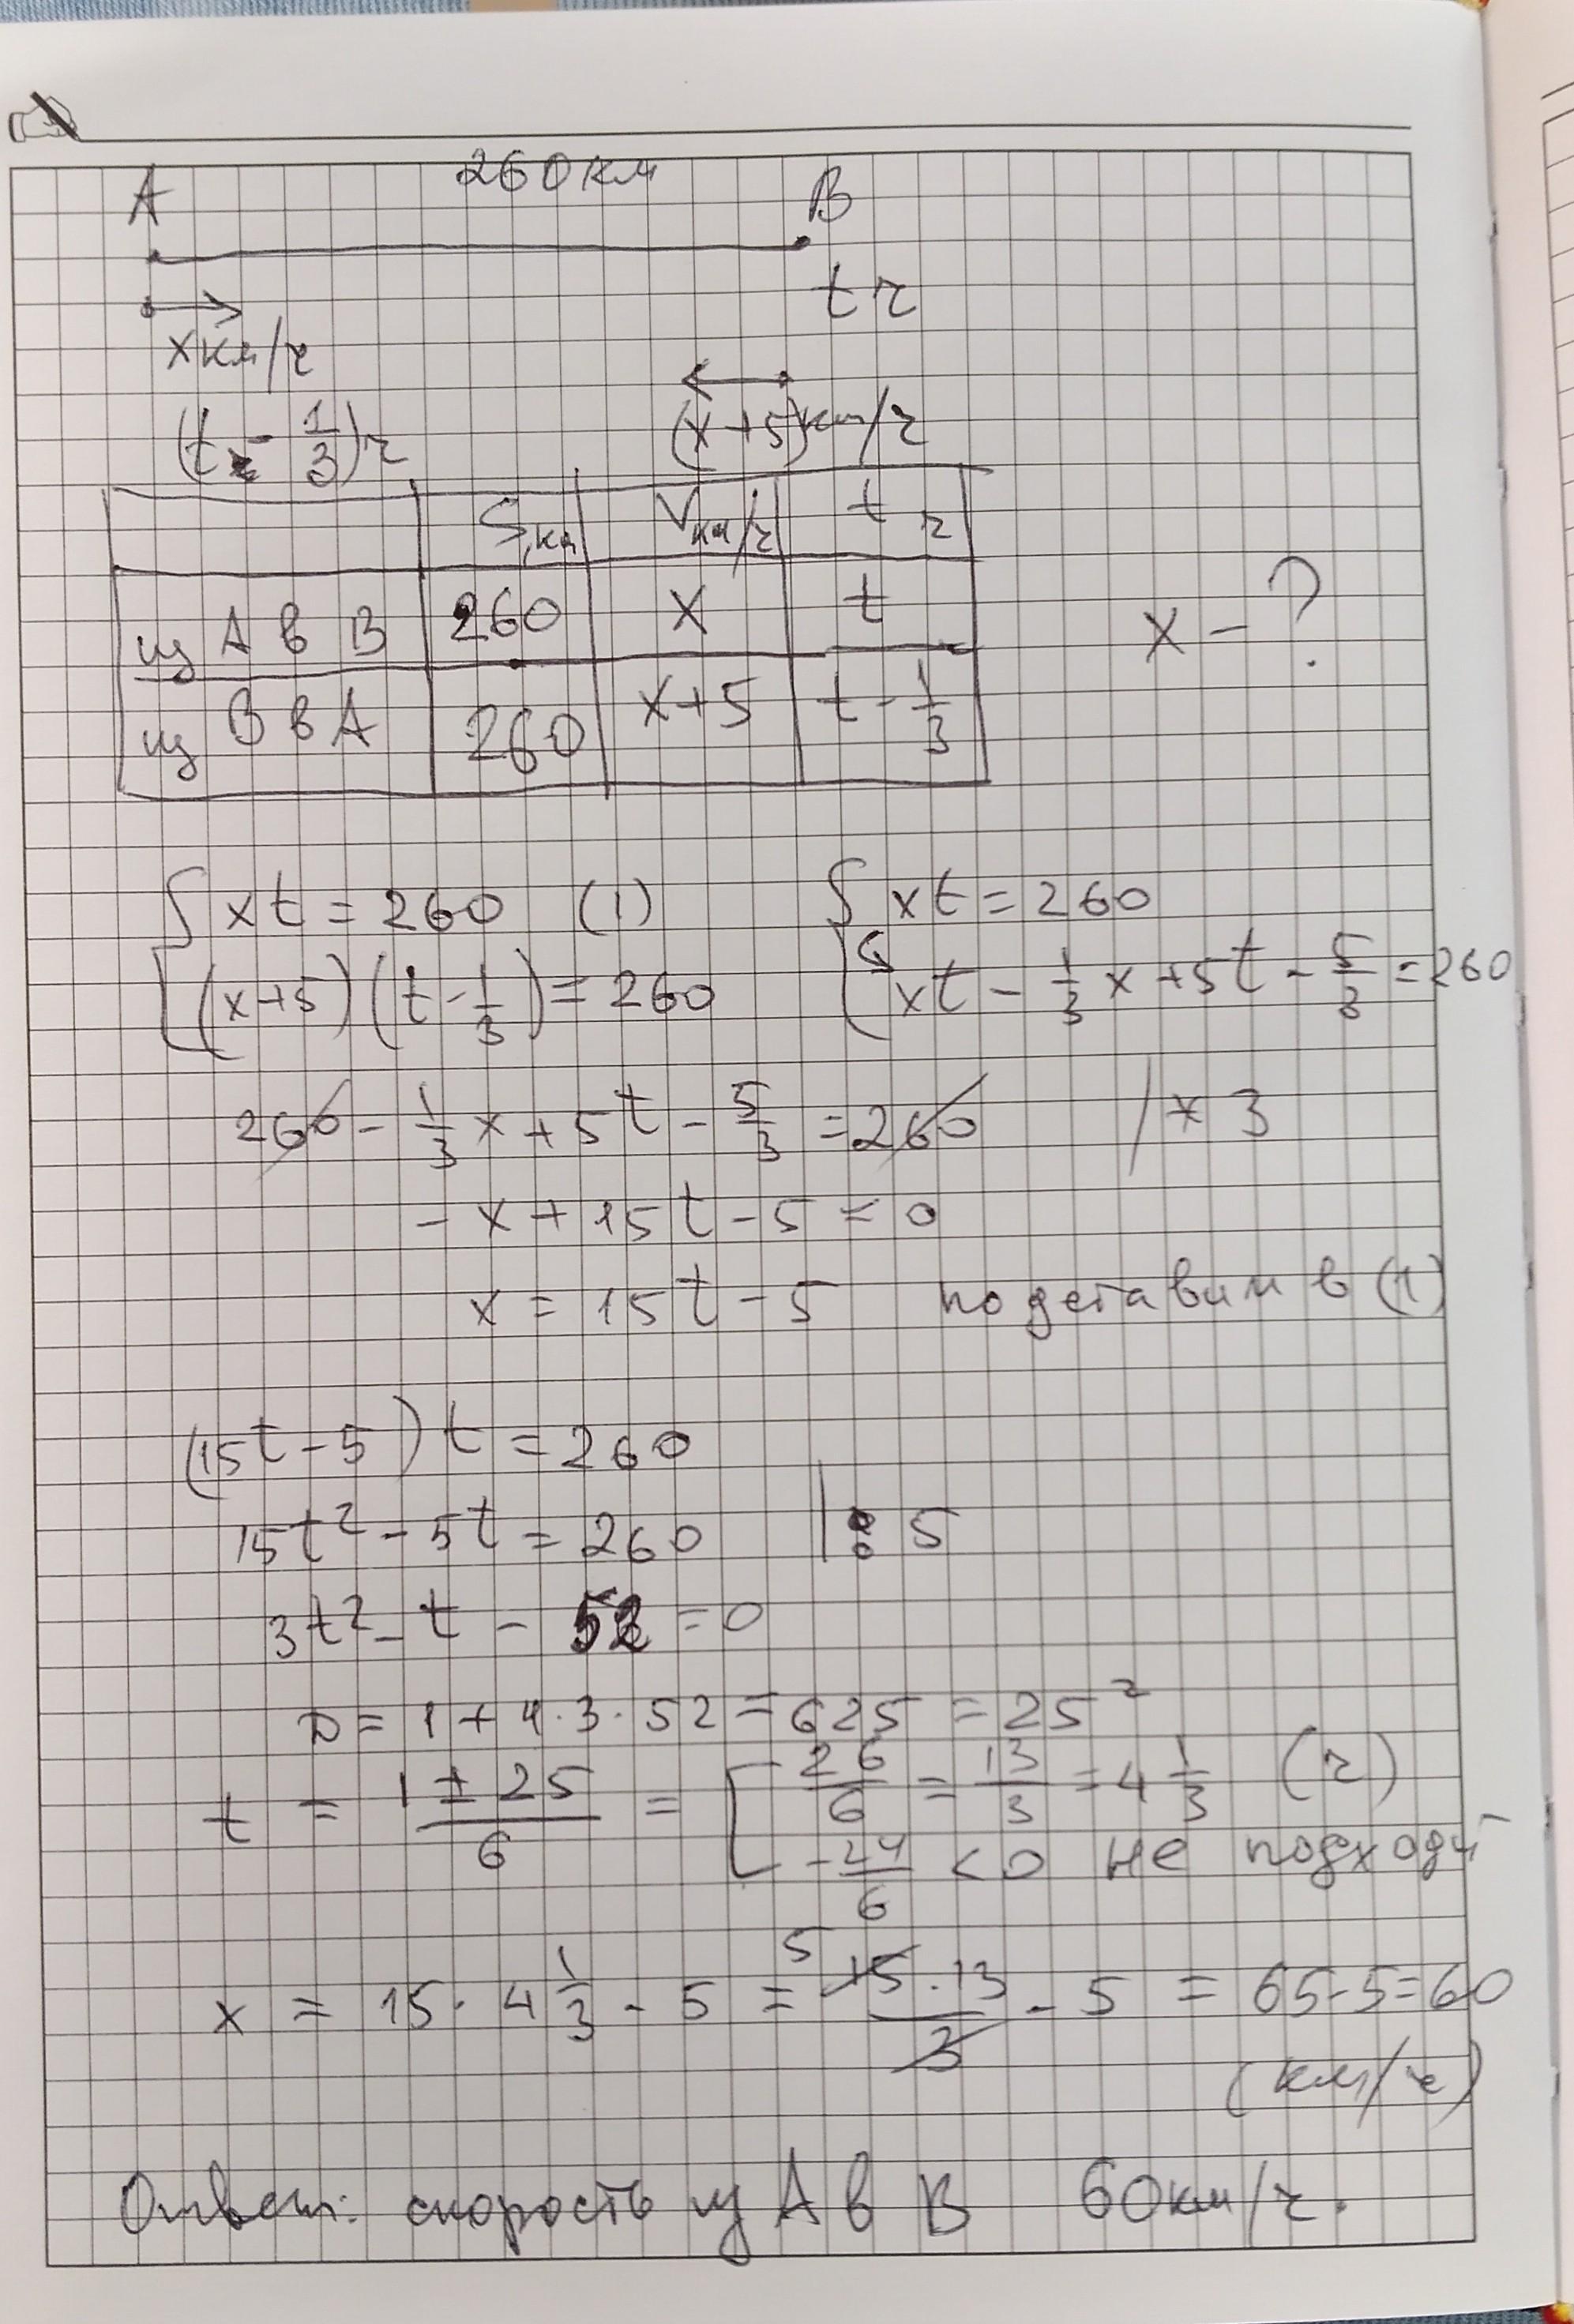 260 км
A B
t ч
x км/ч
(t - 1/3) ч (x+5) км/ч
S, км V км/ч t ч
из A в B 260 x t
x - ?
из B в A 260 x+5 t - 1/3
{ xt = 260 (1) { xt = 260
(x+5)(t - 1/3) = 260 xt - 1/3 x + 5t - 5/3 = 260
260 - 1/3 x + 5t - 5/3 = 260 | * 3
- x + 15t - 5 = 0
x = 15t - 5 подставим в (1)
(15t - 5) t = 260
15t² - 5t = 260 | : 5
3t² - t - 52 = 0
D = 1 + 4 · 3 · 52 = 625 = 25²
t = (1 ± 25)/6 = [ 26/6 = 13/3 = 4 1/3 (ч)
-24/6 < 0 не подходит
x = 15 · 4 1/3 - 5 = 5 15 · 13/3 - 5 = 65 - 5 = 60
(км/ч)
Ответ: скорость из A в B 60 км/ч.